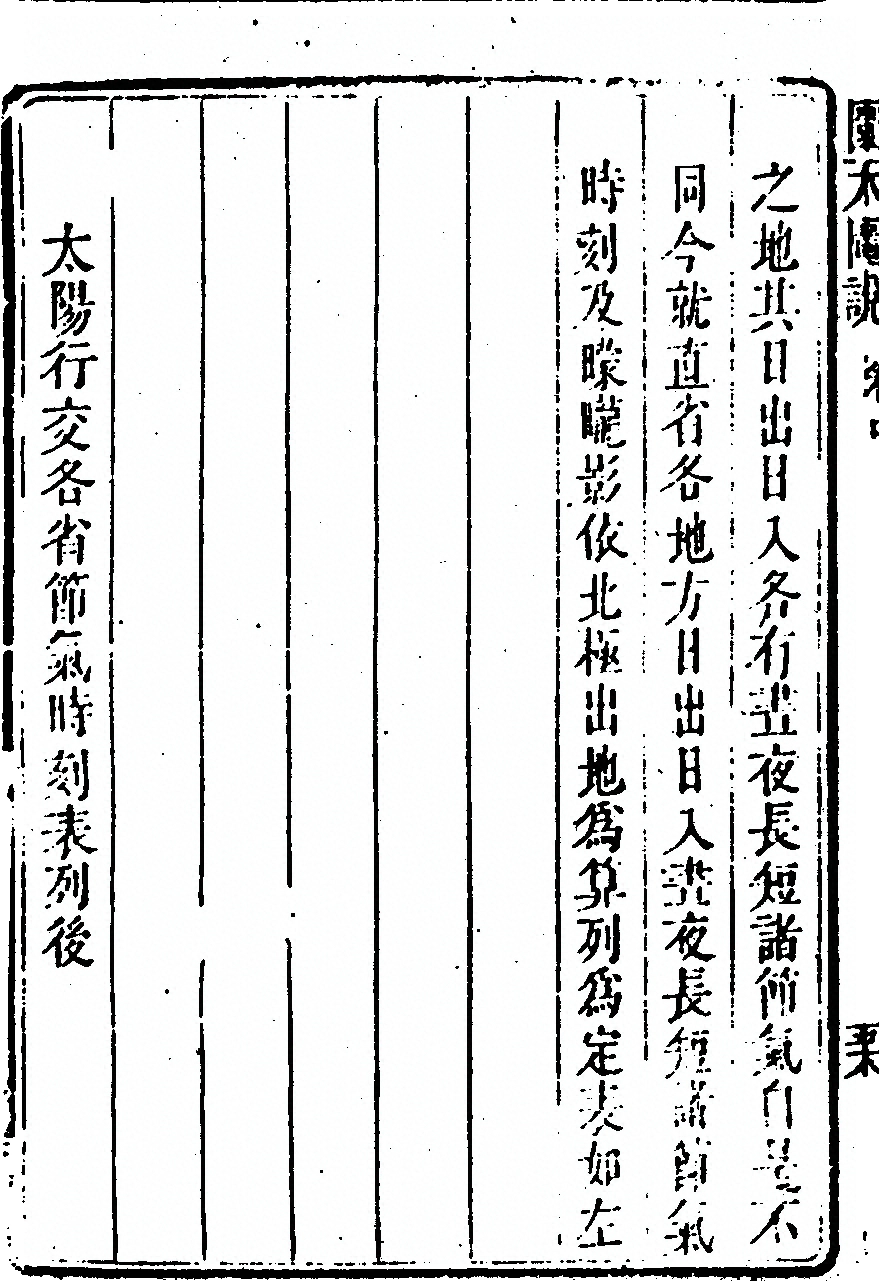 之地其日出日入各有晝夜長短諸節氣自是不
同今就直省各地方日出日入晝夜長短諸節氣
時刻及曚曨影依北極出地爲算列爲定表如左
太陽行交各省節氣時刻表列後